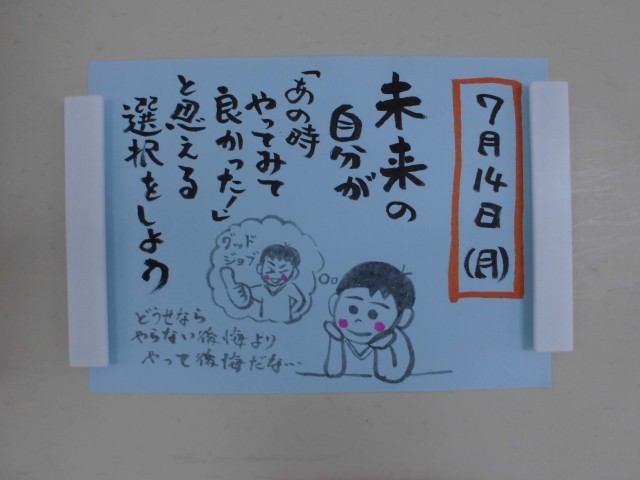 7月14日(月)
未来の
自分が
「あの時
やってみて
良かった!」
と思える
選択をしよう
グッド
ジョブ
どうせなら
やらない後悔より
やって後悔だな…